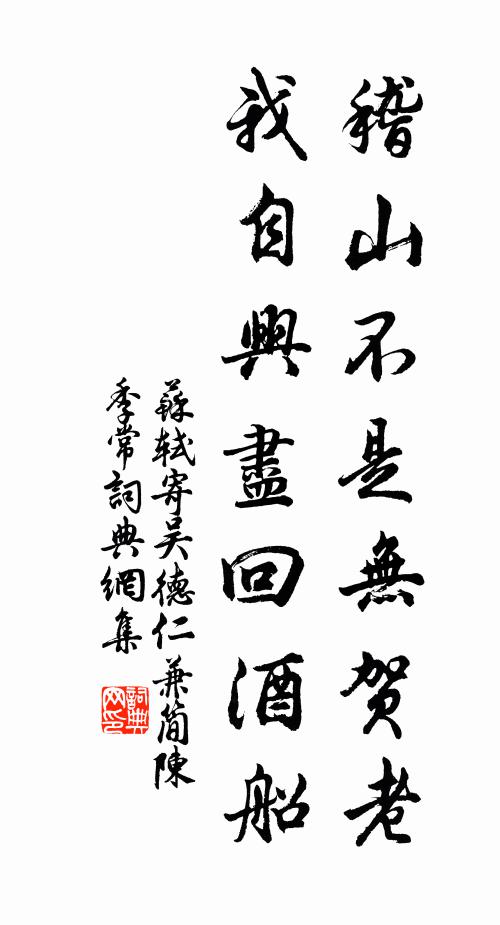 稽山不是無賀老
我自興盡回酒船
蘇軾寄吳德仁兼簡陳
季常詞典網集
詞典
网印